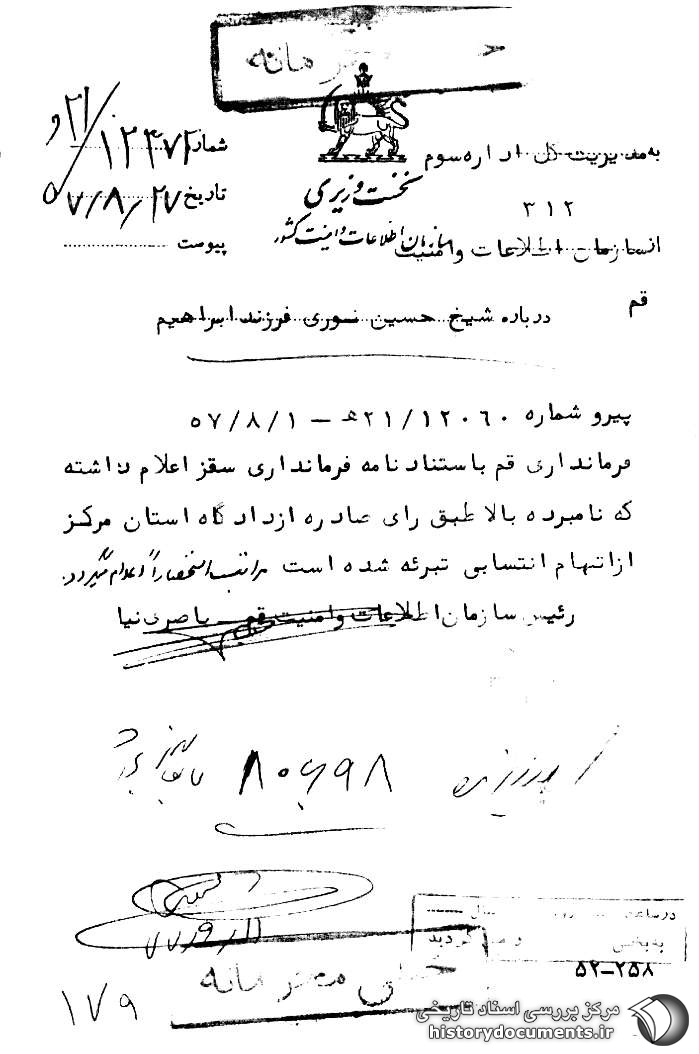 خیلی محرمانه
به مدیریت کل اداره سوم
۳۱۲
شماره ۱۲۴۷۲ / ۲۱ ه
تاریخ ۵۷/۸/۲۷
پیوست
نخست وزیری
سازمان اطلاعات و امنیت کشور
از سازمان اطلاعات و امنیت
قم
درباره شیخ حسین نوری فرزند ابراهیم
پیرو شماره ۲۱/۱۲۰۶۰ ه – ۵۷/۸/۱
فرمانداری قم باستناد نامه فرمانداری سقز اعلام داشته
که نامبرده بالا طبق رای صادره از دادگاه استان مرکز
از اتهام انتسابی تبرئه شده است مراتب استحضاراً اعلام میگردد.
رئیس سازمان اطلاعات و امنیت قم
۸۰۶۹۸
در ساعت
سال
به بخش
وصول گردید
۵۲-۲۵۸
خیلی محرمانه
۱۷۹
مرکز بررسی اسناد تاریخی
historydocuments.ir